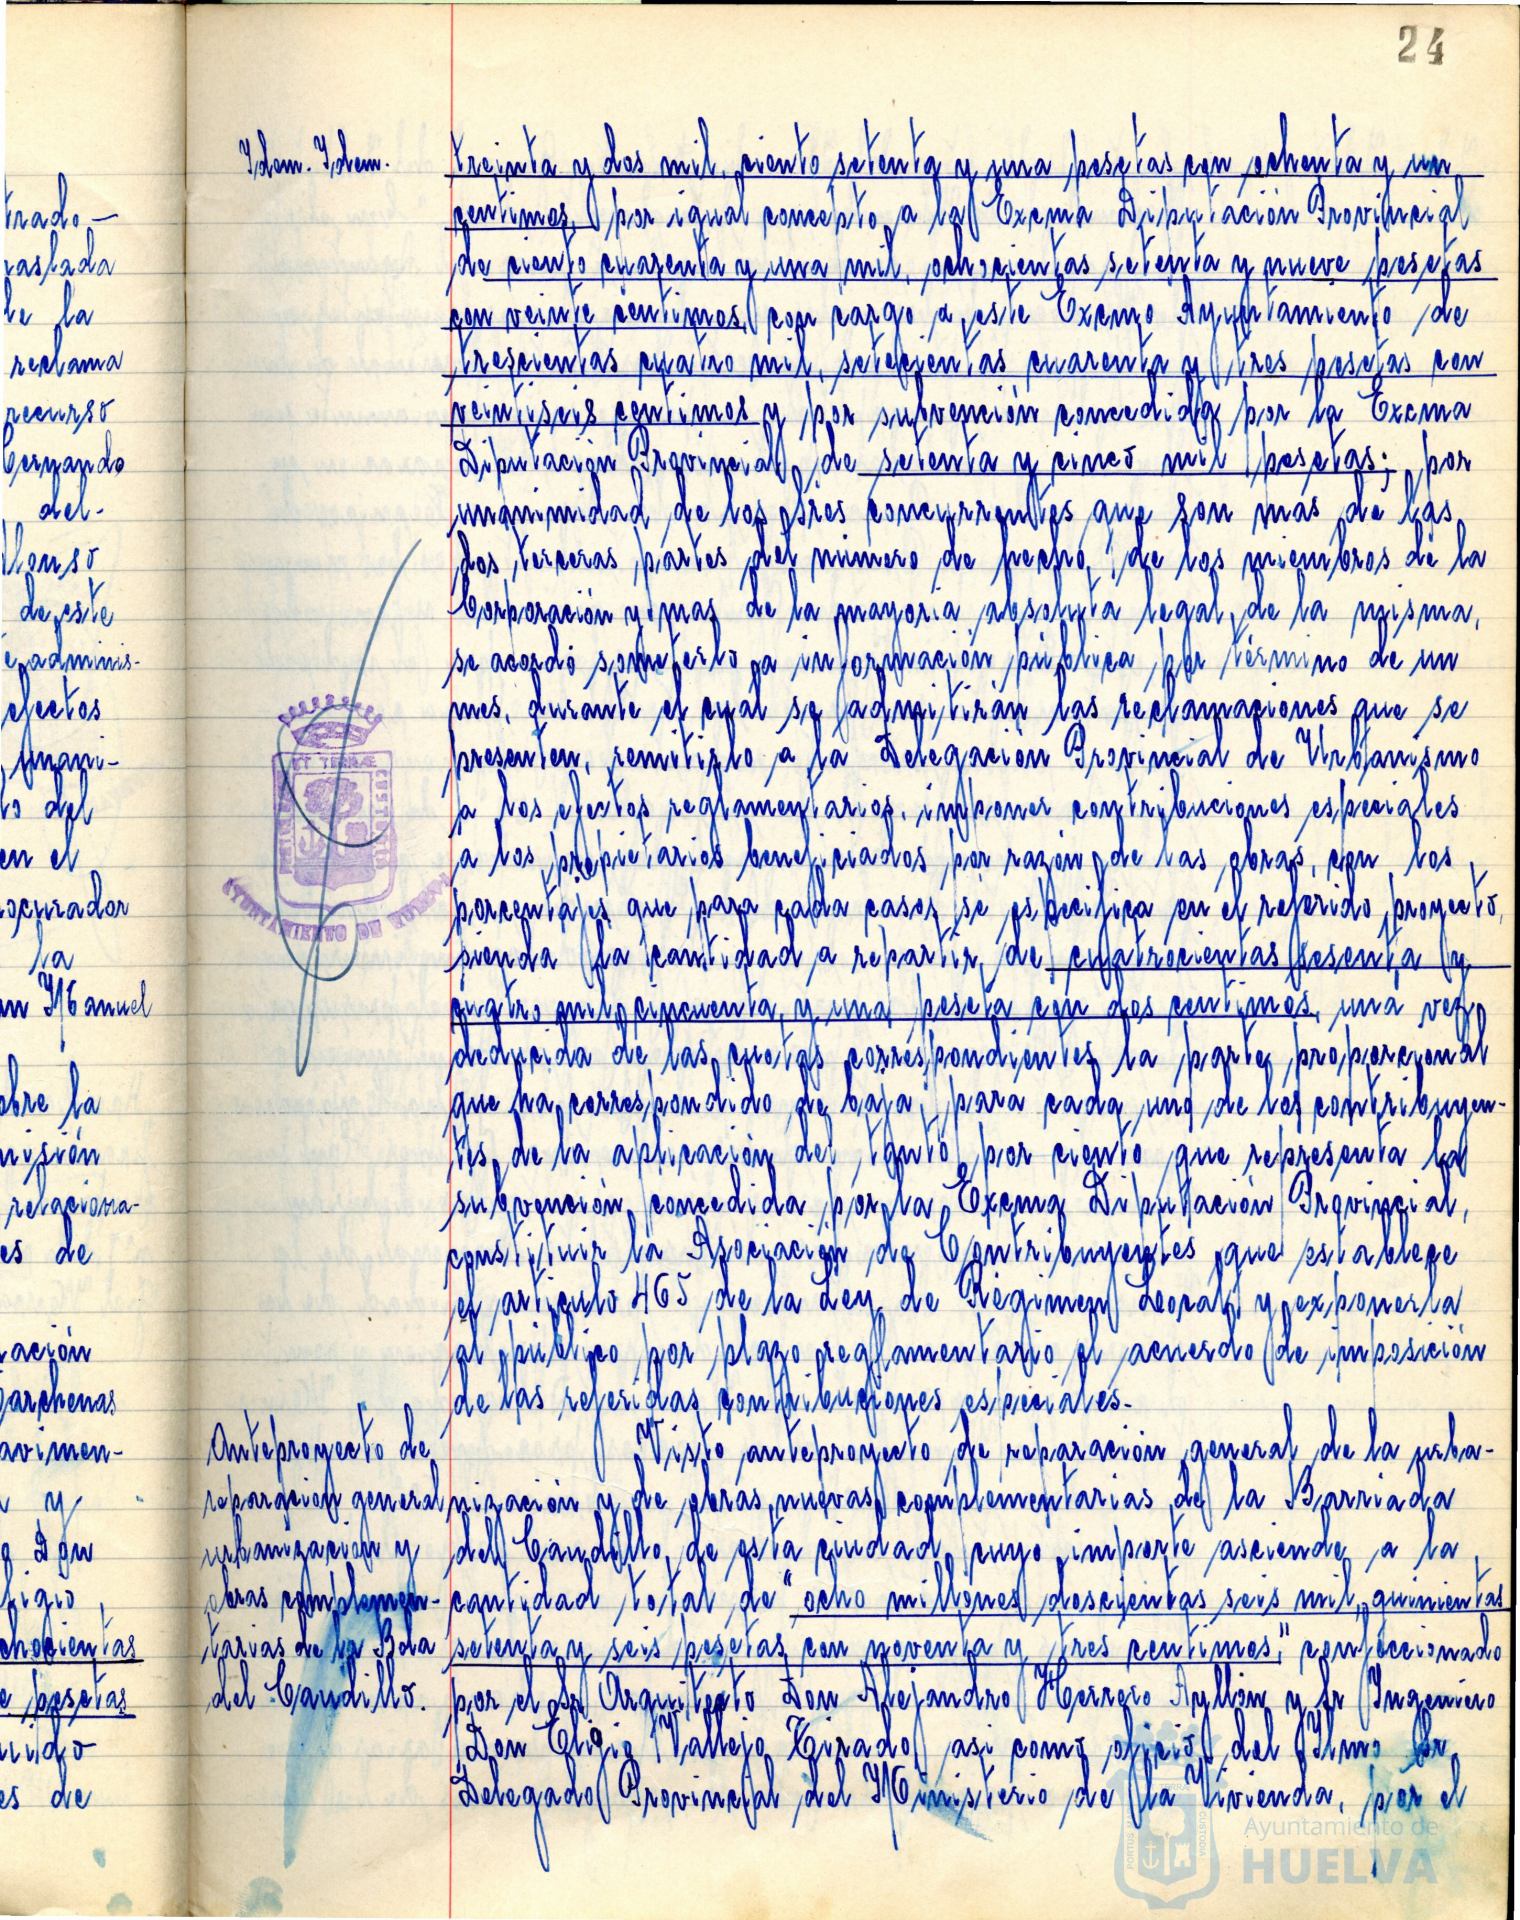 24
Idem. Idem.
treinta y dos mil, ciento setenta y una pesetas con ochenta y un
centimos, por igual concepto a la Excma Diputación Provincial
de ciento cuarenta y una mil, ochocientas setenta y nueve pesetas
con veinte centimos, con cargo a este Excmo Ayuntamiento de
trescientas cuatro mil, setecientas cuarenta y tres pesetas con
veintiseis centimos y por subvención concedida por la Excma
Diputación Provincial de setenta y cinco mil pesetas; por
unanimidad de los Sres concurrentes que son mas de las
dos terceras partes del número de hecho, de los miembros de la
Corporación y mas de la mayoria absoluta legal de la misma,
se acordó someterlo a información pública por término de un
mes, durante el cual se admitirán las reclamaciones que se
presenten, remitirlo a la Delegación Provincial de Urbanismo
a los efectos reglamentarios, imponer contribuciones especiales
a los propietarios beneficiados por razón de las obras, con los
porcentajes que para cada casos se especifica en el referido proyecto,
sienda la cantidad a repartir de cuatrocientas sesenta y
cuatro mil cincuenta y una peseta con dos centimos, una vez
deducida de las cuotas correspondientes la parte proporcional
que ha correspondido de baja, para cada uno de los contribuyen-
tes de la aplicación del tanto por ciento que representa la
subvención concedida por la Excma Diputación Provincial,
constituir la Asociación de Contribuyentes que establece
el articulo 465 de la Ley de Régimen Local y exponerla
al público por plazo reglamentario el acuerdo de imposición
de las referidas contribuciones especiales.-
Anteproyecto de
reparación general
urbanización y
obras complemen-
tarias de la Bda
del Caudillo.
Visto anteproyecto de reparación general de la urba-
nización y de obras nuevas complementarias de la Barriada
del Caudillo, de esta ciudad, cuyo importe asciende a la
cantidad total de "ocho millones doscientas seis mil, quinientas
setenta y seis pesetas con noventa y tres centimos," confeccionado
por el Sr Arquitecto Don Alejandro Herrero Ayllón y Sr Ingeniero
Don Eligio Vallejo Tirado, asi como oficio del Ilmo Sr
Delegado Provincial del Ministerio de la Vivienda, por el
trado-
raslada
de la
reclama
recurso
Bernando
del-
Alonso
de este
adminis-
efectos
unani-
lo del
en el
rocurador
la
Manuel
obre la
misión
relaciona-
es de
ación
archenas
avimen-
y
Don
ligio,
chocientas
pesetas
uido
es de
AYUNTAMIENTO DE HUELVA
Ayuntamiento de
HUELVA